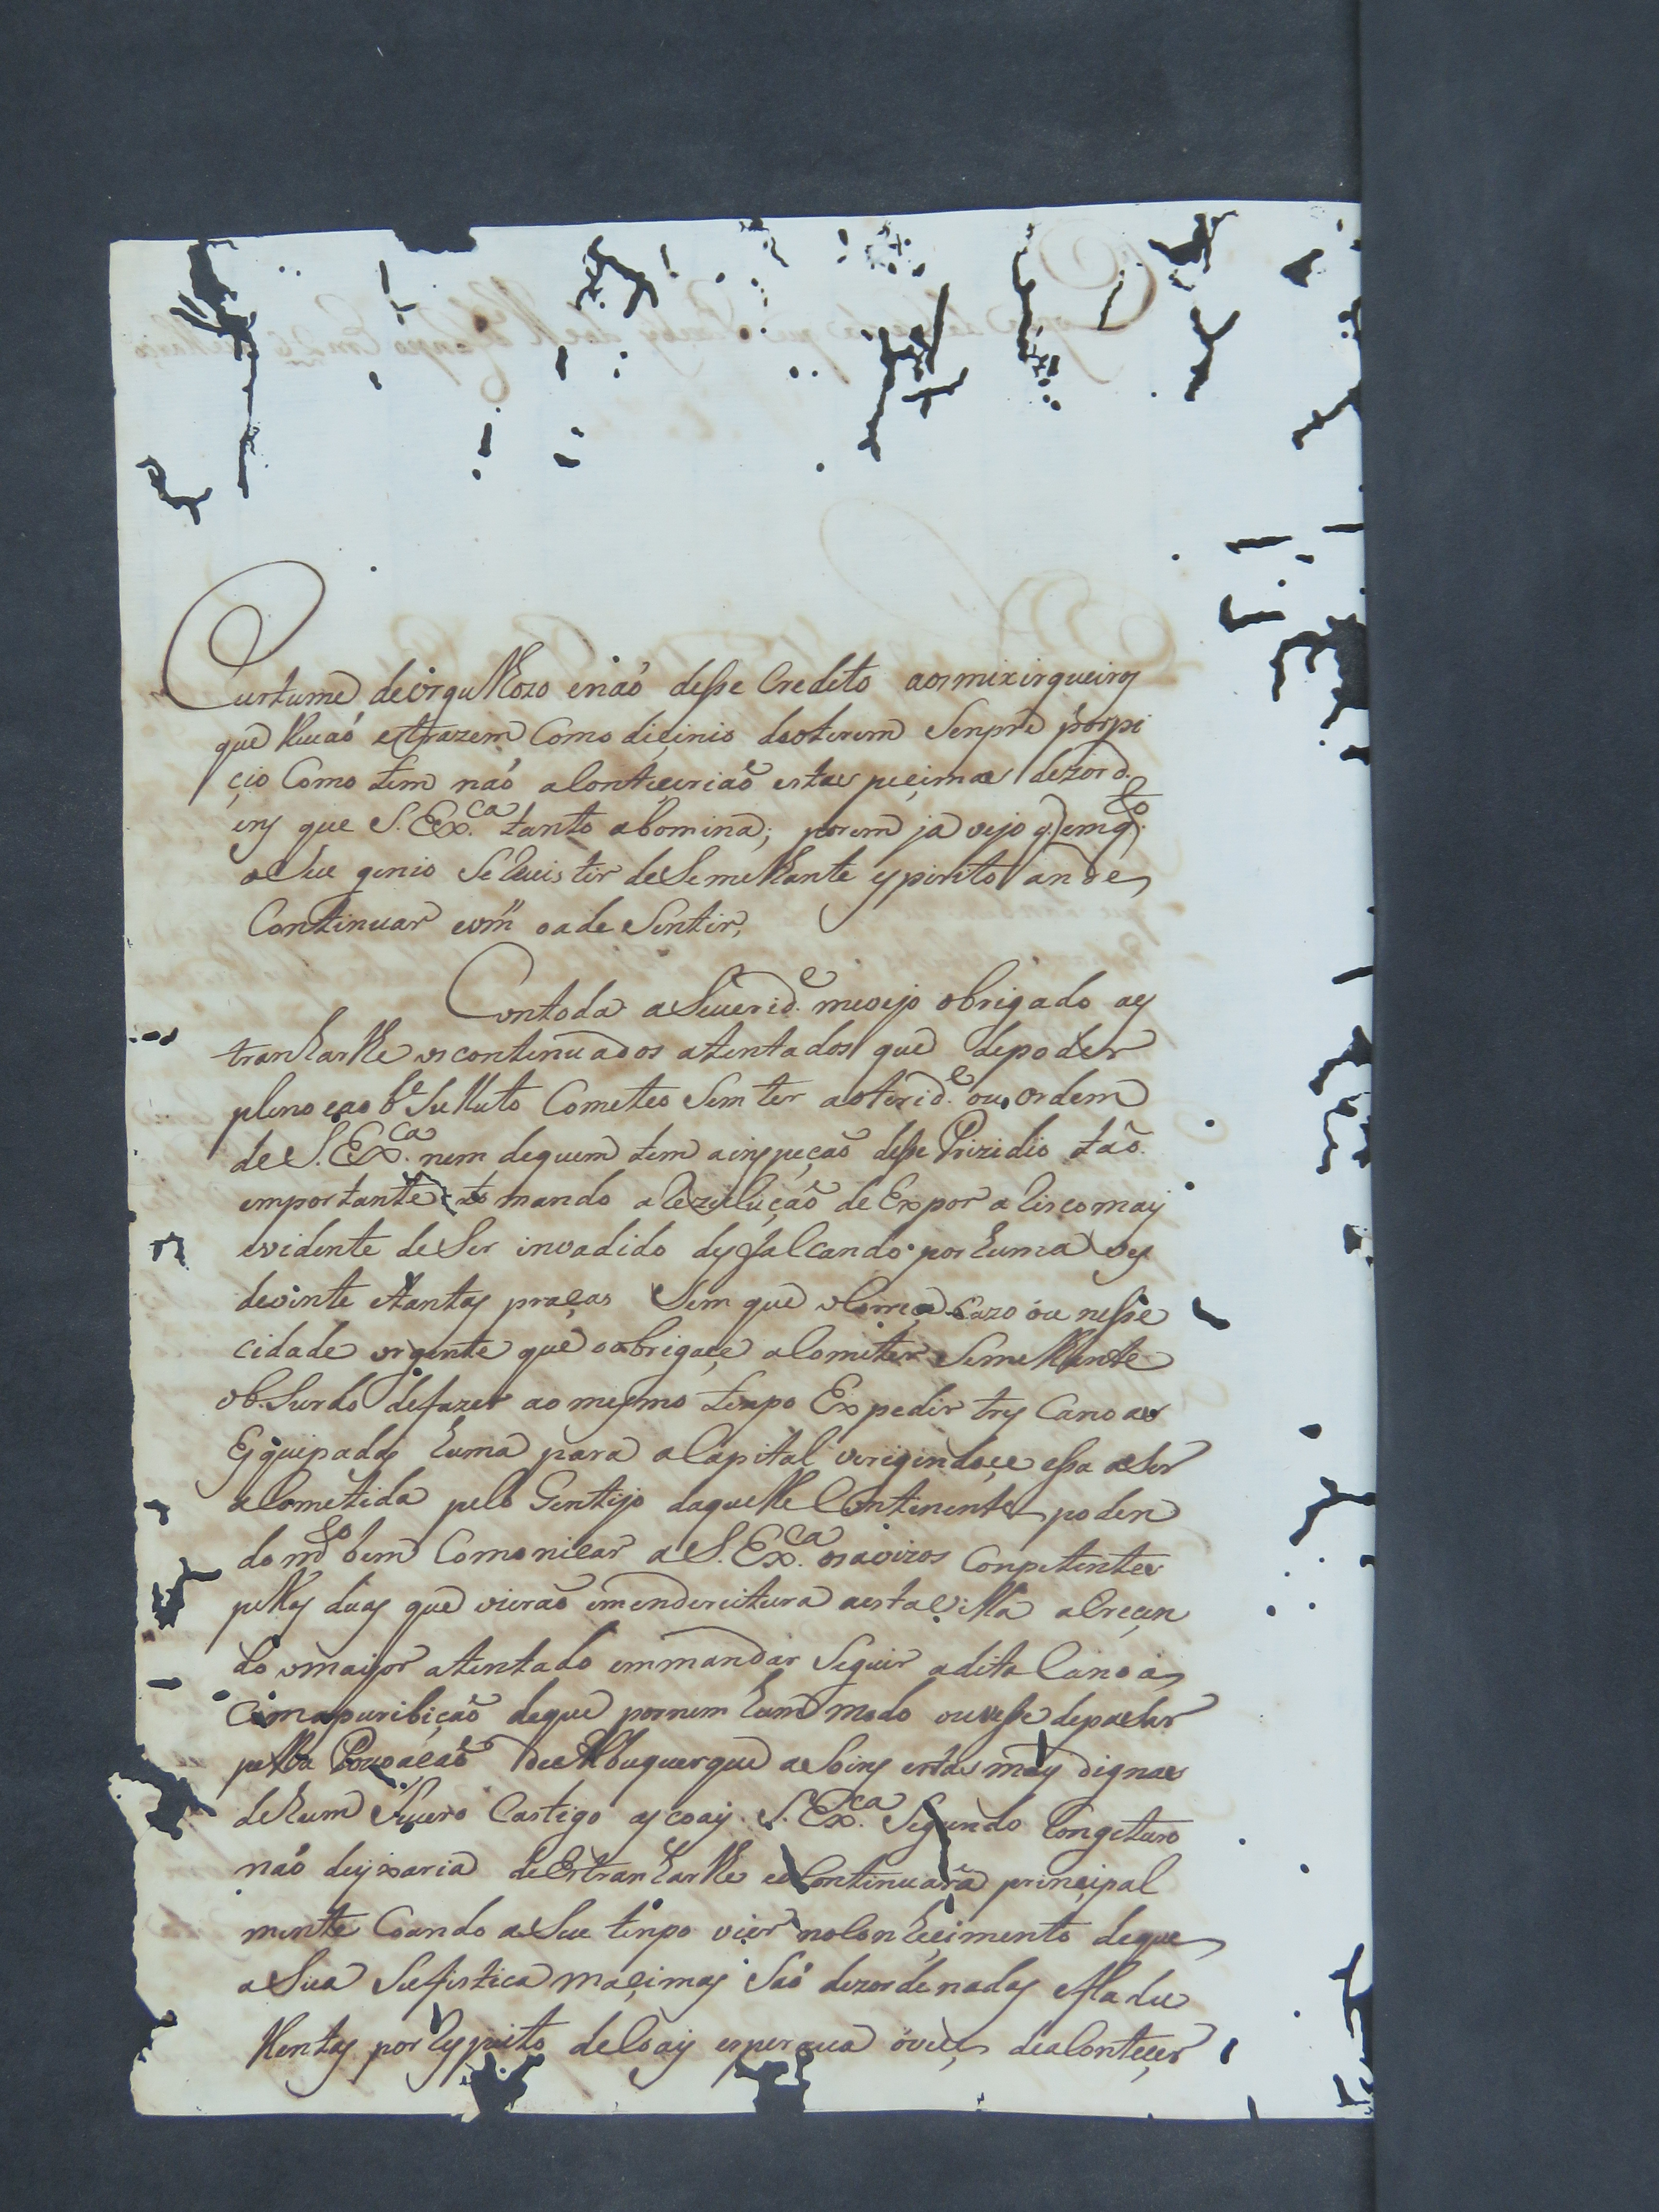 Curtume de orgulhozo e não desse Credeto aos mixirqueiros
que levão e trazem Como diçinio de o terem Senpre porpi
çio Como tem não aContiçirião estas peçimas dezord.
eñs que S. Ex.ca tanto abomina; porem ja vejo q. emq.to
o Seu genio Se Revistir de Semelhante espirito an de
Continuar e vm oade Sentir,
Contoda a Siverid.e me vejo obrigado aes
tranharlhe os continuados atentados que de poder
pleno e ao Cometeo Sem ter autorid.e ou ordem
de S. Ex.ca nem de quem tem a inspeção desse Prizidio tão
emportante tomando a Rezuluçaõ de Expor a Risco mais
evidente de Ser invadido desfalcando por huma ves
de vinte etantas praças Sem que oComa Cazo ou nesse
cidade urgente que o obrigaçe aCometer Semelhante
obSurdo de fazer ao mesmo tenpo Expedir tres Canoas
Esquipadas huma para aCapital verigindoçe essa a Ser
aCometida pelo Gentijo daquelle Continente poden
do m.to bem Comonicar a S. Ex.ca os avizos Conpitentes
pellas duas que vierão emendereitura aesta villa aCreçen
do o maijor atentado em mandar Seguir a dita Canoa
Com a puribiçaõ de que por nem hum modo ouvesse de paçar
pella Povoaçaõ de Albuquerque asoins estas mais dignas
de hum Sivero Castigo as coais S. Ex.ca Segundo Congeturo
não deixaria de Estranharlhe e Continuara prinçipal
mente Coando a Seu tenpo vier no Conheçimento de que
a Sua Sufistica maçimas São dezordenadas e fradu
lentas por espirito de Coais esperava ovece de aConteçer